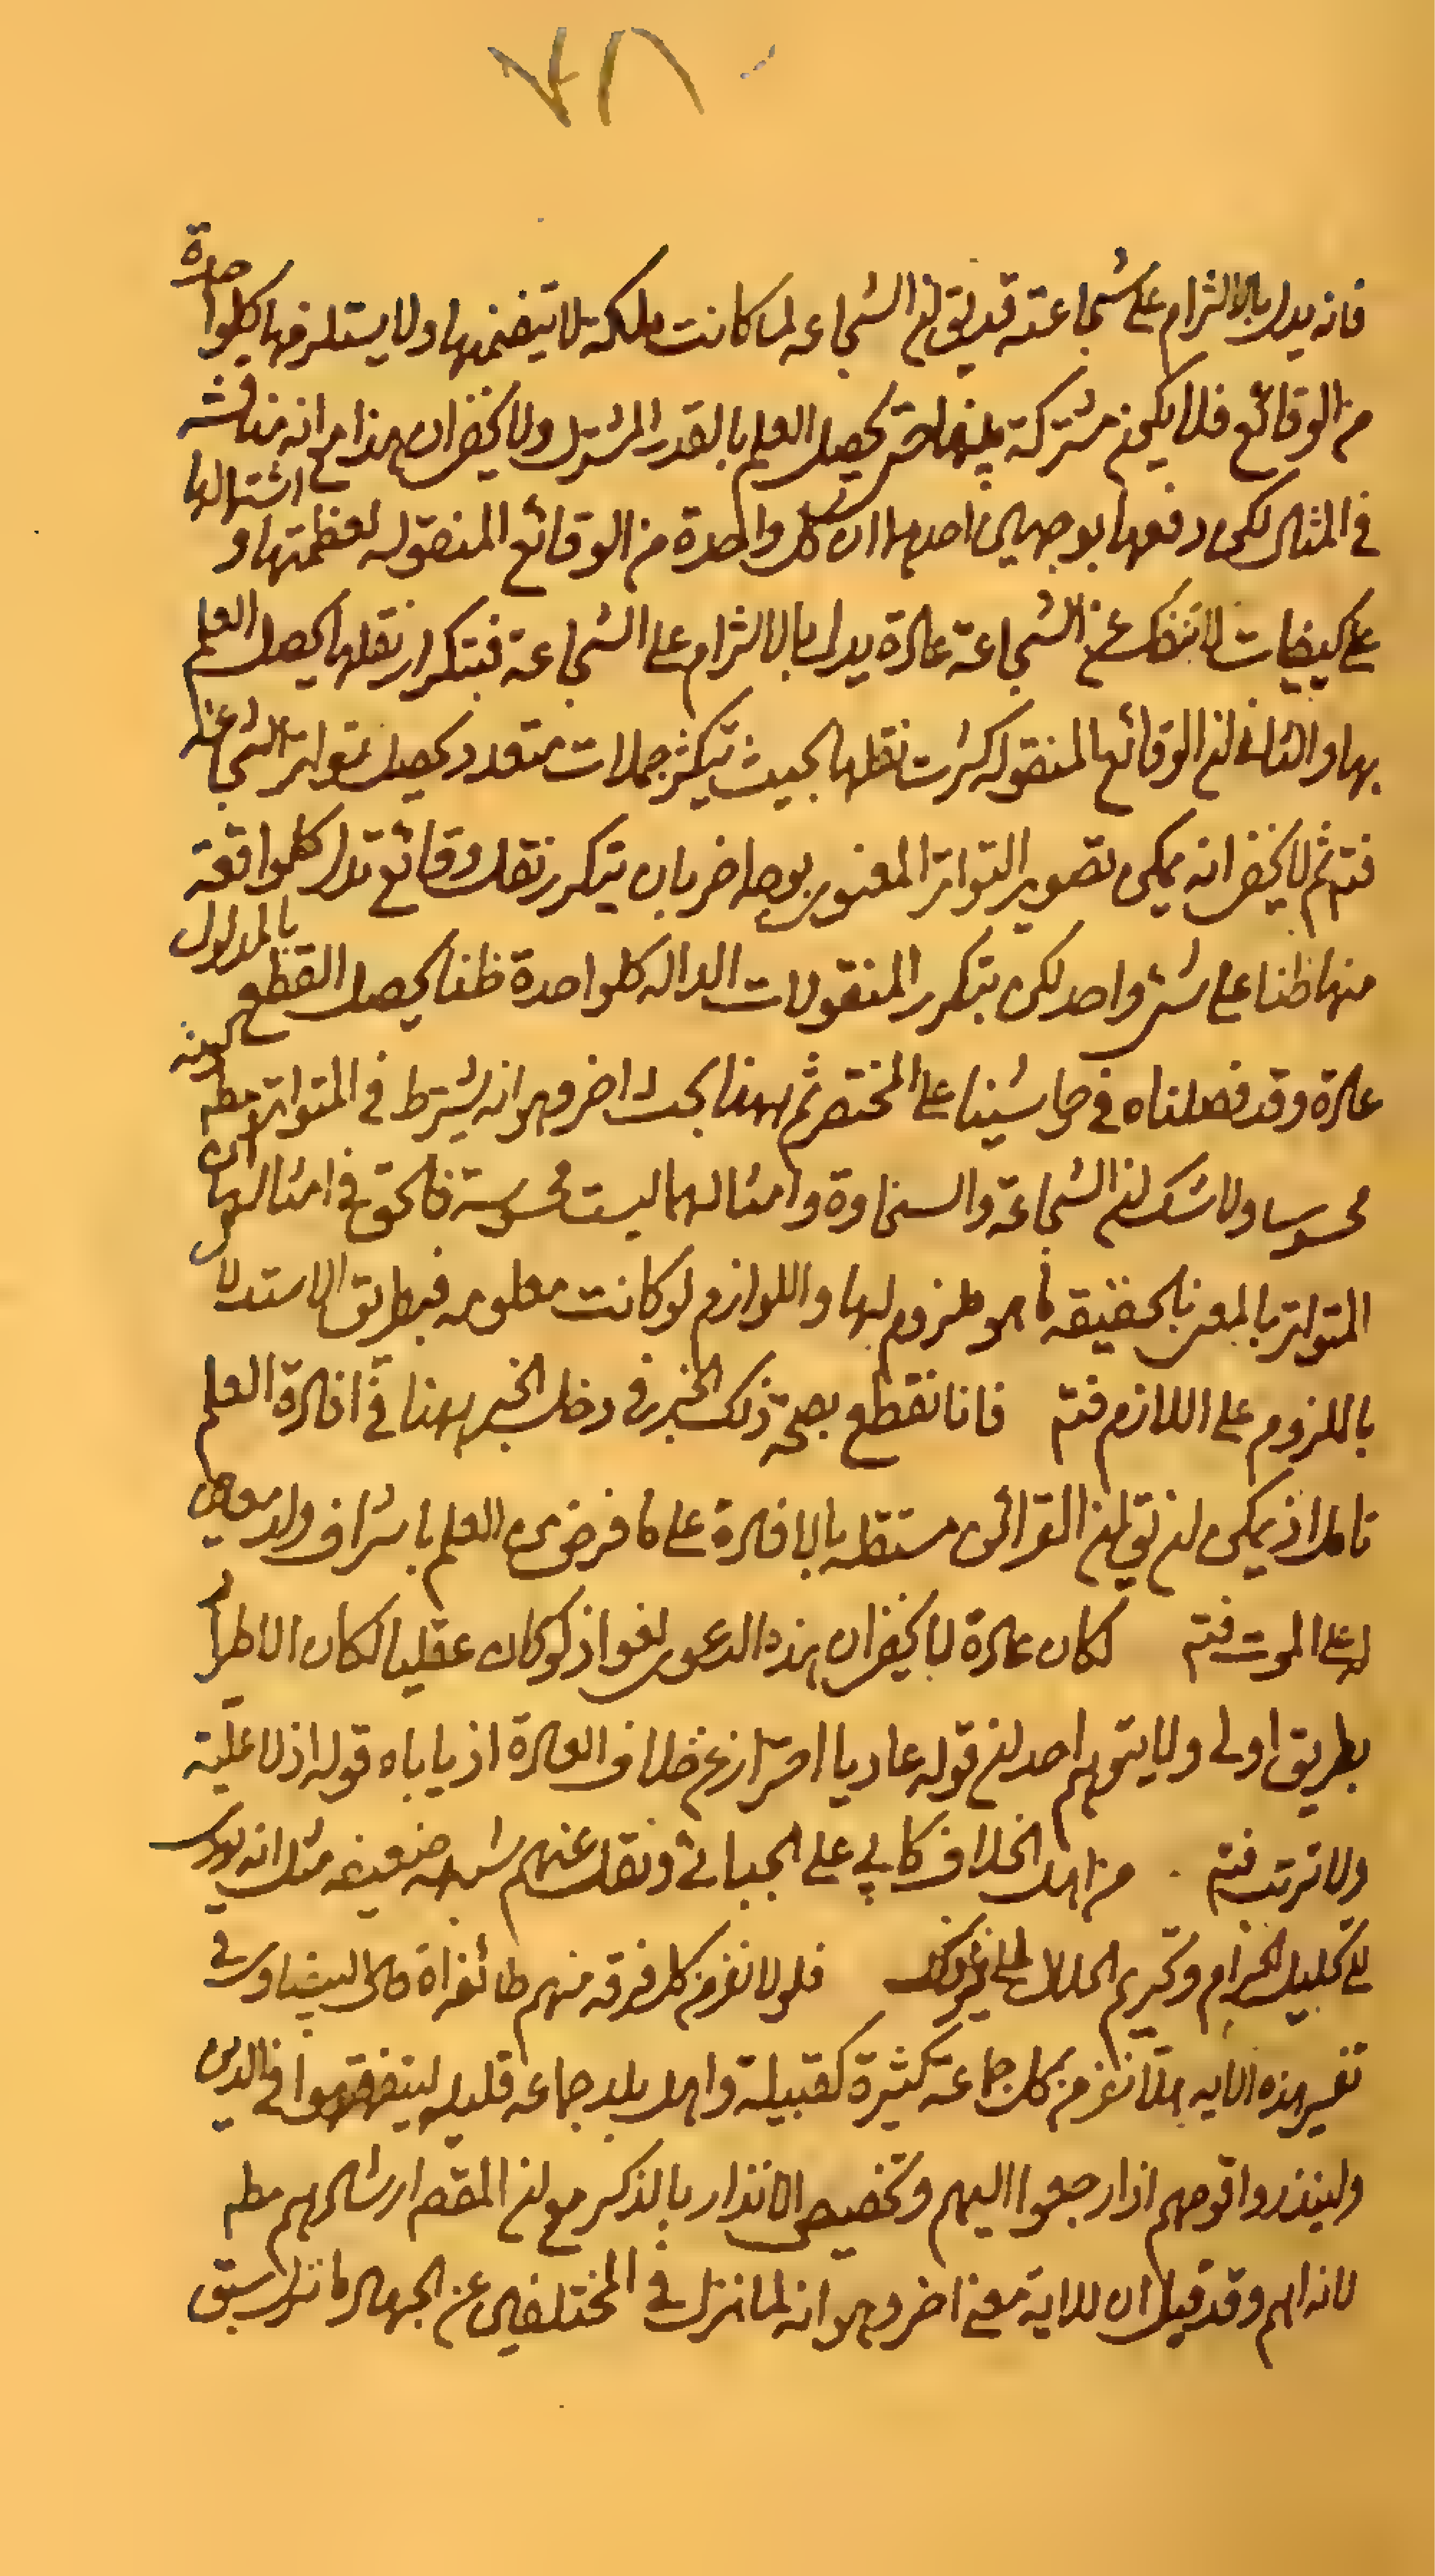 ٧٨
فانه يدل بالالتزام على شجاعته قد يق ان الشجاعه لما كانت ملكة لا يتضمنها ولا يستلزمها كلواحدة
من الوقائع فلا يكون مشتركة بينها حتى يحصل العلم بالقدر المشترك ولا يخفى ان هذا مع انه مناقشه
في المثال يمكن دفعها بوجهين احدهما ان كل واحدة من الوقائع المنقوله لعظمتها واشتمالها
على كيفيات لا تنفك عن الشجاعة عادة يدل بالالتزام على الشجاعة فبتكرار نقلها يحصل العلم
بها والثاني ان الوقائع المنقوله كثرت نقلها بحيث تكثر حملات متعدد يحصل بتواتر الشجاعه
فتم ثم لا يخفى انه يمكن تصوير التواتر المعنوى بوجه اخر بان يتكرر نقل وقائع تدل كلواقعة
منها ظنا على شئ واحد لكن بتكرر المنقولات الداله كلواحدة ظنا يحصل القطع بالمدلول
عادة وقد فصلناه في حواشينا على المختصر ثم ههنا بحث اخر وهو انه يشترط في المتواتر مط كونه
محسوسا ولا شك ان الشجاعة والسخاوة وامثالهما ليست محسوسة فالحق في امثالهما ان
المتواتر بالمعنى بالحقيقه ما هو ملزوم لها واللوازم لو كانت معلومه فبطريق الاستدلال
بالملزوم على اللازم فتم فانا نقطع بصحة ذلك الخبر في دخل الخبر ههنا في افادة العلم
تامل اذ يمكن ان يق ان القرائن مستقله بالافادة على ما فرض من العلم باشراف ولد معين
له على الموت فتم لكان عادة لا يخفى ان هذه الدعوى لغو اذ لو كان عقليا لكان الاطراد
بطريق اولى ولا يتوهم احد ان قوله عاديا احتراز عن خلاف العادة اذ ياباه قوله اذ لا علية
ولا ترتب فتم من اهل الخلاف كابي على الجبائي ونقل عنهم شبهه ضعيفه مثل انه يودى
الى تحليل الحرام وتحريم الحلال الى غير ذلك فلولا نفر من كل فرقه منهم طائفة اه قال البيضاوى في
تفسير هذه الايه هلا نفر من كل جماعة كثيرة كقبيلة واهل بلد جماعه قليله ليتفقهوا في الدين
ولينذروا قومهم اذا رجعوا اليهم وتخصيص الانذار بالذكر مع ان المقص ارشادهم مط
لانه اهم وقد قيل ان للاية معنى اخر وهو انه لما نزل في المختلفين عن الجهاد ما نزل سبق